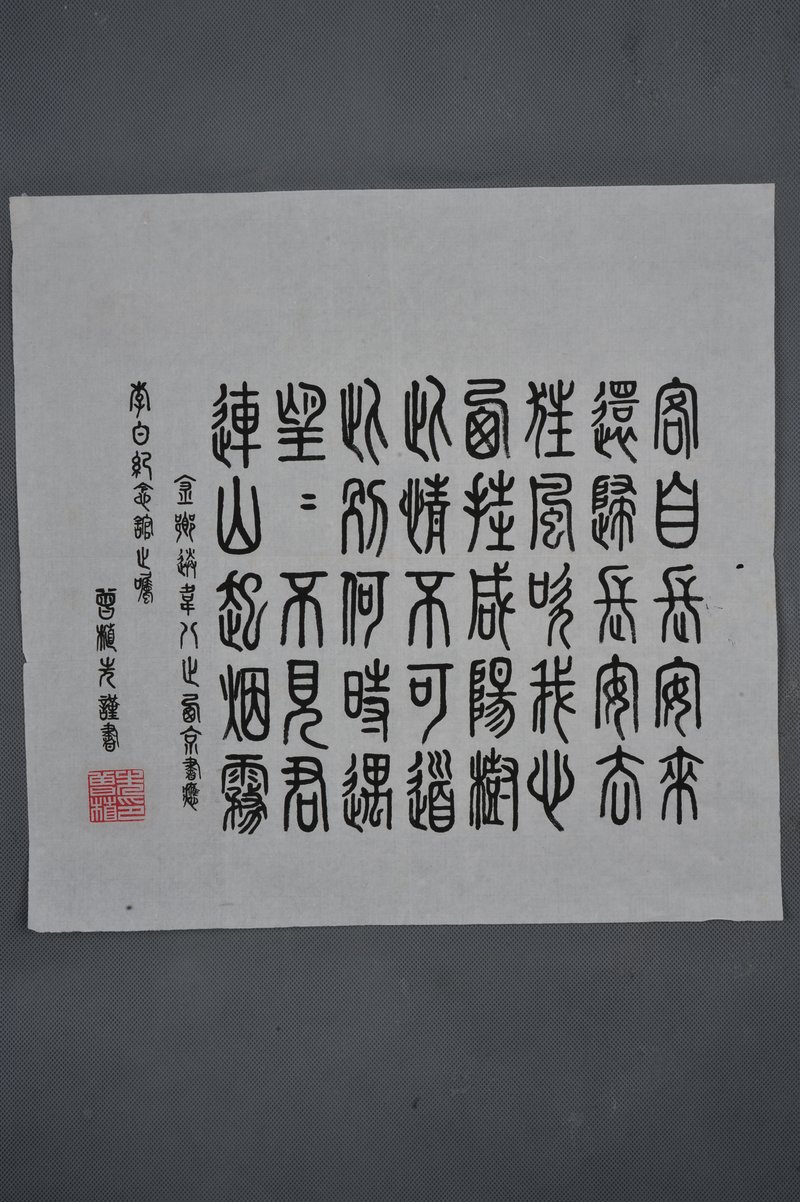 客自長安來
還歸長安去
狂風吹我心
西挂咸陽樹
此情不可道
此別何時遇
望〻不見君
連山起烟霧
金鄉送韋八之西京書應
李白紀念館之囑
曾植先謹書
先印
曾植